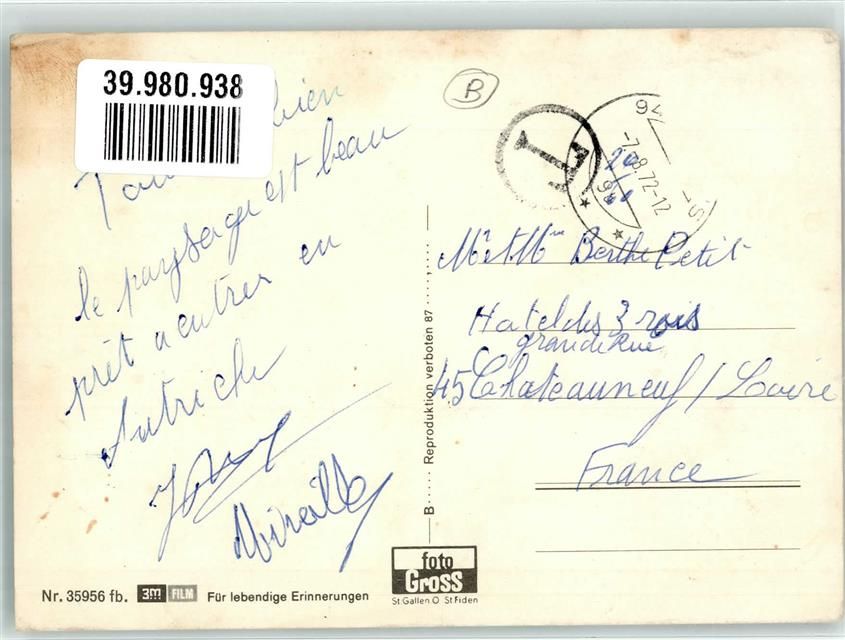 39.980.938
bien
le paysage est beau
prêt a entrer en
Autriche
Mireille
B
T
94
-7.-8.72-12
Mr et Mme Berthe Petit
Hotel des 3 rois
grande Rue
45 Chateauneuf / Loire
France
B..... Reproduktion verboten 87 .....,
Nr. 35956 fb. 3M FILM Für lebendige Erinnerungen
foto
Gross
St.Gallen O. St.Fiden